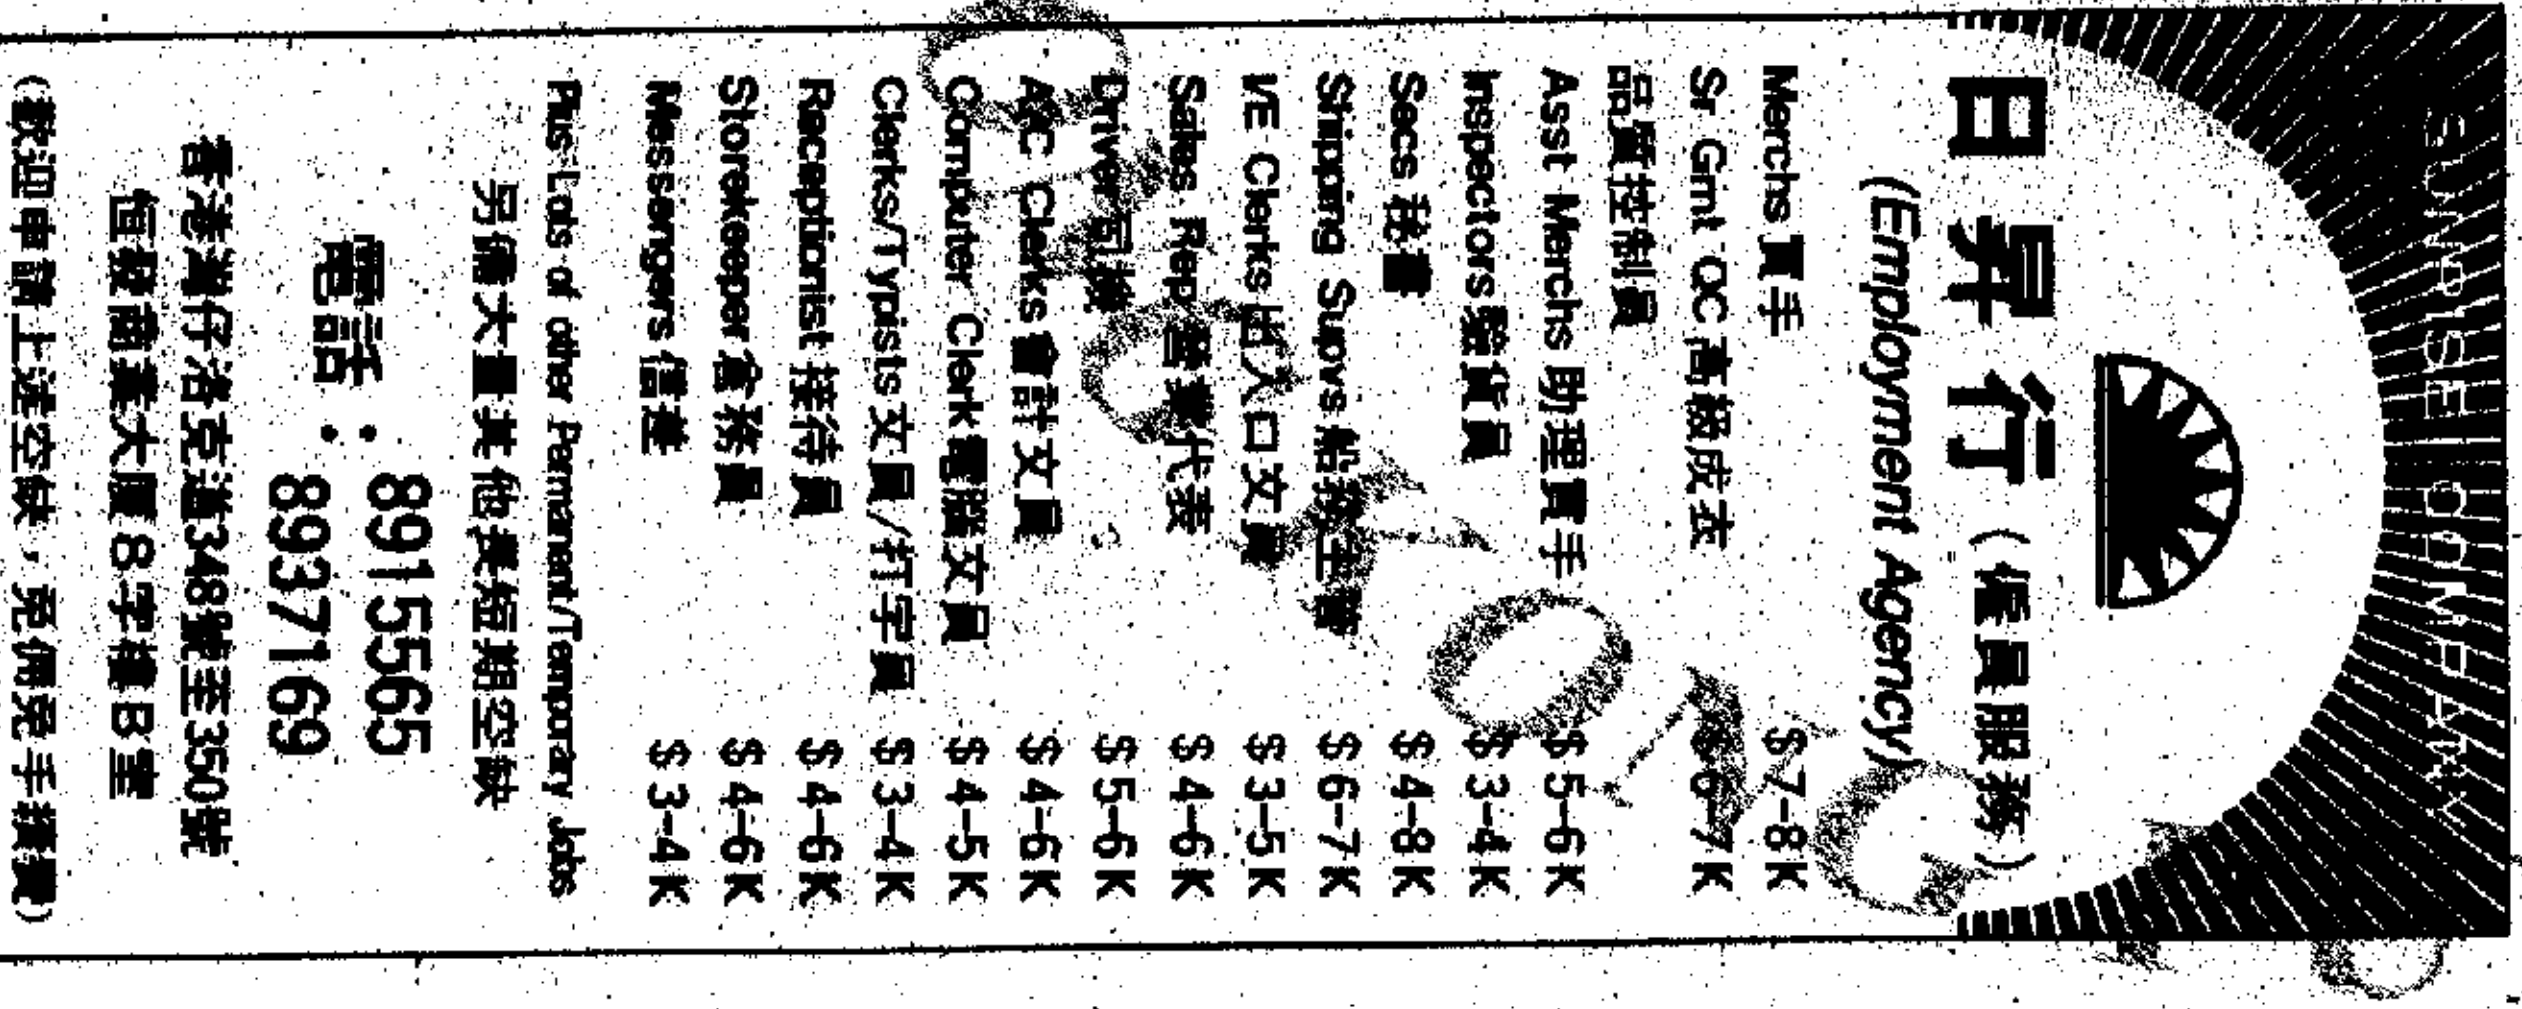 SUNRISE COMPANY
日昇行(僱員服務)
(Employment Agency)
Merchs 買手 $7-8K
Sr Gmt QC 高級成衣 $6-7K
品質控制員
Asst Merchs 助理買手 $5-6K
Inspectors 驗貨員 $3-4K
Secs 秘書 $4-8K
Shipping Supvs 船務主管 $6-7K
I/E Clerks 出入口文員 $3-5K
Sales Rep 營業代表 $4-6K
Driver 司機 $5-6K
A/C Clerks 會計文員 $4-6K
Computer Clerk 電腦文員 $4-5K
Clerks/Typists 文員/打字員 $3-4K
Receptionist 接待員 $4-6K
Storekeeper 倉務員 $4-6K
Messengers 信差 $3-4K
Plus Lots of other Permanent/Temporary Jobs
另備大量其他長短期空缺
電話:8915565
8937169
香港灣仔洛克道348號至350號
恒發商業大厦8字樓B室
(歡迎申請上述空缺,免佣免手續費)